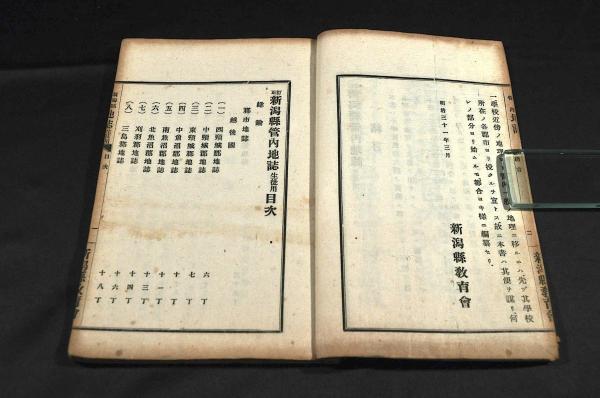 新潟縣敎育會
一 學校近傍ノ地理ヨリ 地理ニ移ルニハ先ヅ其學校
所在ノ各郡市ヨリ授クルヲ宜トス故ニ本書ハ其便ヲ謀リ何
レノ部分ヨリ始ムルモ都合ヨキ樣ニ編纂セリ
明治三十一年三月
新潟縣敎育會
訂正 新潟縣管内地誌 生徒用 目次
總論
郡市地誌
越後國
(一) 西頸城郡地誌 六丁
(二) 中頸城郡地誌 七丁
(三) 東頸城郡地誌 十丁
(四) 中魚沼郡地誌 十一丁
(五) 南魚沼郡地誌 十三丁
(六) 北魚沼郡地誌 十四丁
(七) 刈羽郡地誌 十六丁
(八) 三島郡地誌 十八丁
目次